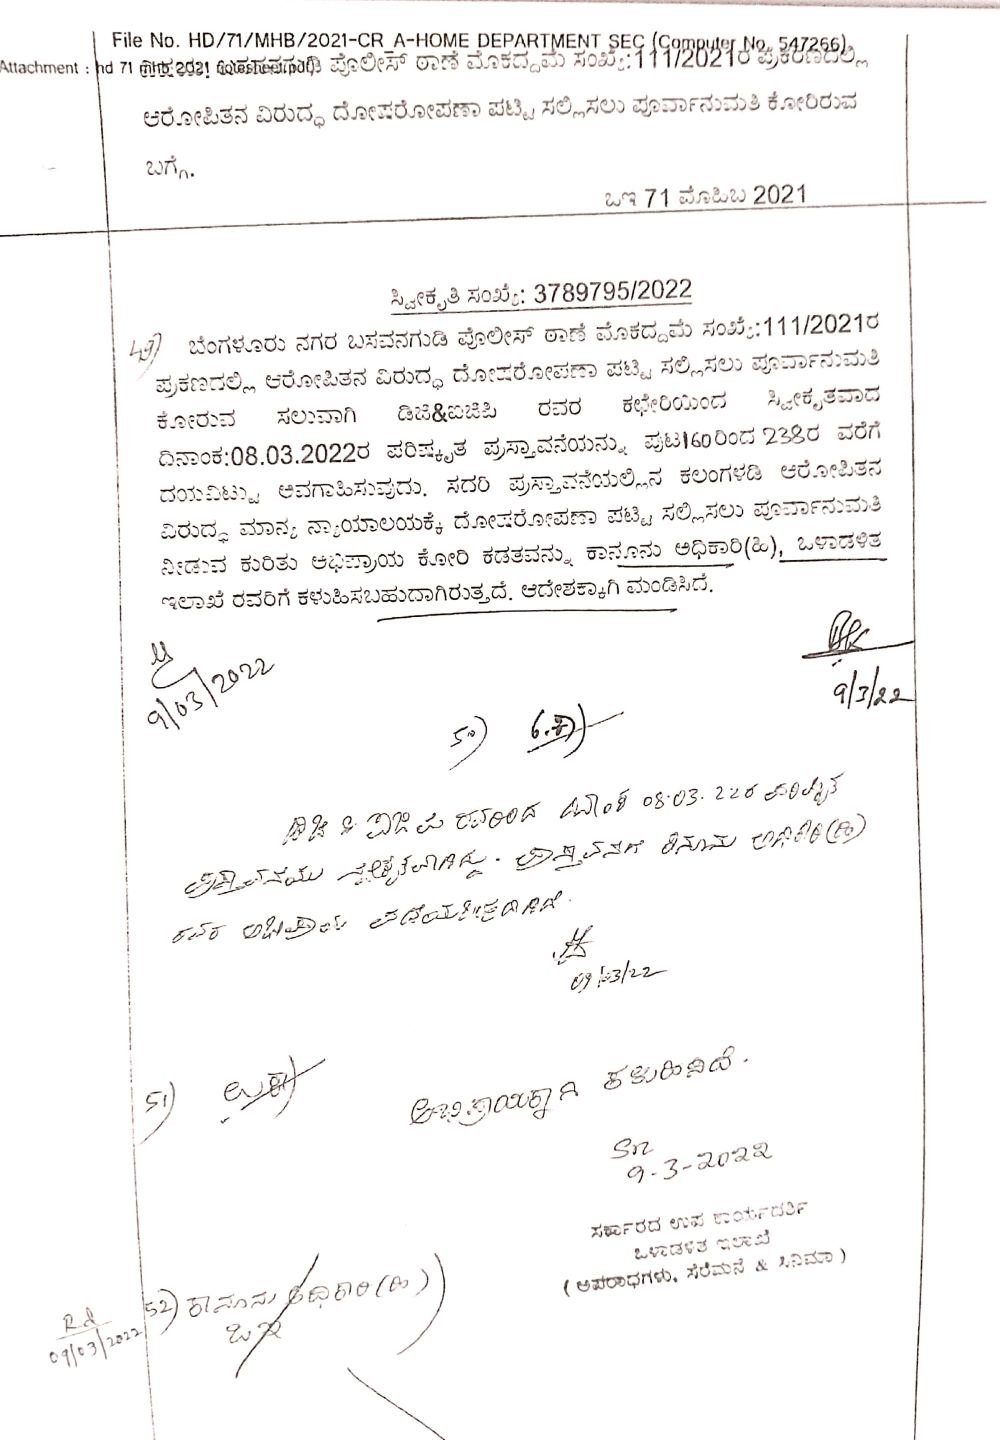 File No. HD/71/MHB/2021-CR A-HOME DEPARTMENT SEC (Computer No. 547266)
Attachment : hd 71 mhb 2021 notesheet.pdf)
ಪೊಲೀಸ್ ಠಾಣೆ ಮೊಕದ್ದಮೆ ಸಂಖ್ಯೆ:111/2021ರ ಪ್ರಕರಣದಲ್ಲಿ
ಆರೋಪಿತನ ವಿರುದ್ಧ ದೋಷರೋಪಣಾ ಪಟ್ಟಿ ಸಲ್ಲಿಸಲು ಪೂರ್ವಾನುಮತಿ ಕೋರಿರುವ
ಬಗ್ಗೆ.
ಒಇ 71 ಮೊಹಿಬ 2021
ಸ್ವೀಕೃತಿ ಸಂಖ್ಯೆ: 3789795/2022
49) ಬೆಂಗಳೂರು ನಗರ ಬಸವನಗುಡಿ ಪೊಲೀಸ್ ಠಾಣೆ ಮೊಕದ್ದಮೆ ಸಂಖ್ಯೆ:111/2021ರ
ಪ್ರಕಣದಲ್ಲಿ ಆರೋಪಿತನ ವಿರುದ್ಧ ದೋಷರೋಪಣಾ ಪಟ್ಟಿ ಸಲ್ಲಿಸಲು ಪೂರ್ವಾನುಮತಿ
ಕೋರುವ ಸಲುವಾಗಿ ಡಿಜಿ&ಐಜಿಪಿ ರವರ ಕಛೇರಿಯಿಂದ ಸ್ವೀಕೃತವಾದ
ದಿನಾಂಕ:08.03.2022ರ ಪರಿಷ್ಕೃತ ಪ್ರಸ್ತಾವನೆಯನ್ನು ಪುಟ160ರಿಂದ 238ರ ವರೆಗೆ
ದಯವಿಟ್ಟು ಅವಗಾಹಿಸುವುದು. ಸದರಿ ಪ್ರಸ್ತಾವನೆಯಲ್ಲಿನ ಕಲಂಗಳಡಿ ಆರೋಪಿತನ
ವಿರುದ್ಧ ಮಾನ್ಯ ನ್ಯಾಯಾಲಯಕ್ಕೆ ದೋಷರೋಪಣಾ ಪಟ್ಟಿ ಸಲ್ಲಿಸಲು ಪೂರ್ವಾನುಮತಿ
ನೀಡುವ ಕುರಿತು ಅಭಿಪ್ರಾಯ ಕೋರಿ ಕಡತವನ್ನು ಕಾನೂನು ಅಧಿಕಾರಿ(ಹಿ), ಒಳಾಡಳಿತ
ಇಲಾಖೆ ರವರಿಗೆ ಕಳುಹಿಸಬಹುದಾಗಿರುತ್ತದೆ. ಆದೇಶಕ್ಕಾಗಿ ಮಂಡಿಸಿದೆ.
9/03/2022
9/3/22
50)
ರವರಿಂದ ದಿನಾಂಕ 08.03.22ರ ಪರಿಷ್ಕೃತ
ಪ್ರಸ್ತಾವನೆಯು ಸ್ವೀಕೃತವಾಗಿದ್ದು. ಕಾನೂನು ಅಧಿಕಾರಿ(ಹಿ)
ರವರ ಅಭಿಪ್ರಾಯ
09/03/22
51)
ಅಭಿಪ್ರಾಯಕ್ಕಾಗಿ ಕಳುಹಿಸಿದೆ.
9-3-2022
ಸರ್ಕಾರದ ಉಪ ಕಾರ್ಯದರ್ಶಿ
ಒಳಾಡಳಿತ ಇಲಾಖೆ
( ಅಪರಾಧಗಳು, ಸೆರೆಮನೆ & ಸಿನಿಮಾ )
52) ಕಾನೂನು ಅಧಿಕಾರಿ(ಹಿ)
ಒಇ
Rd
09/03/2022